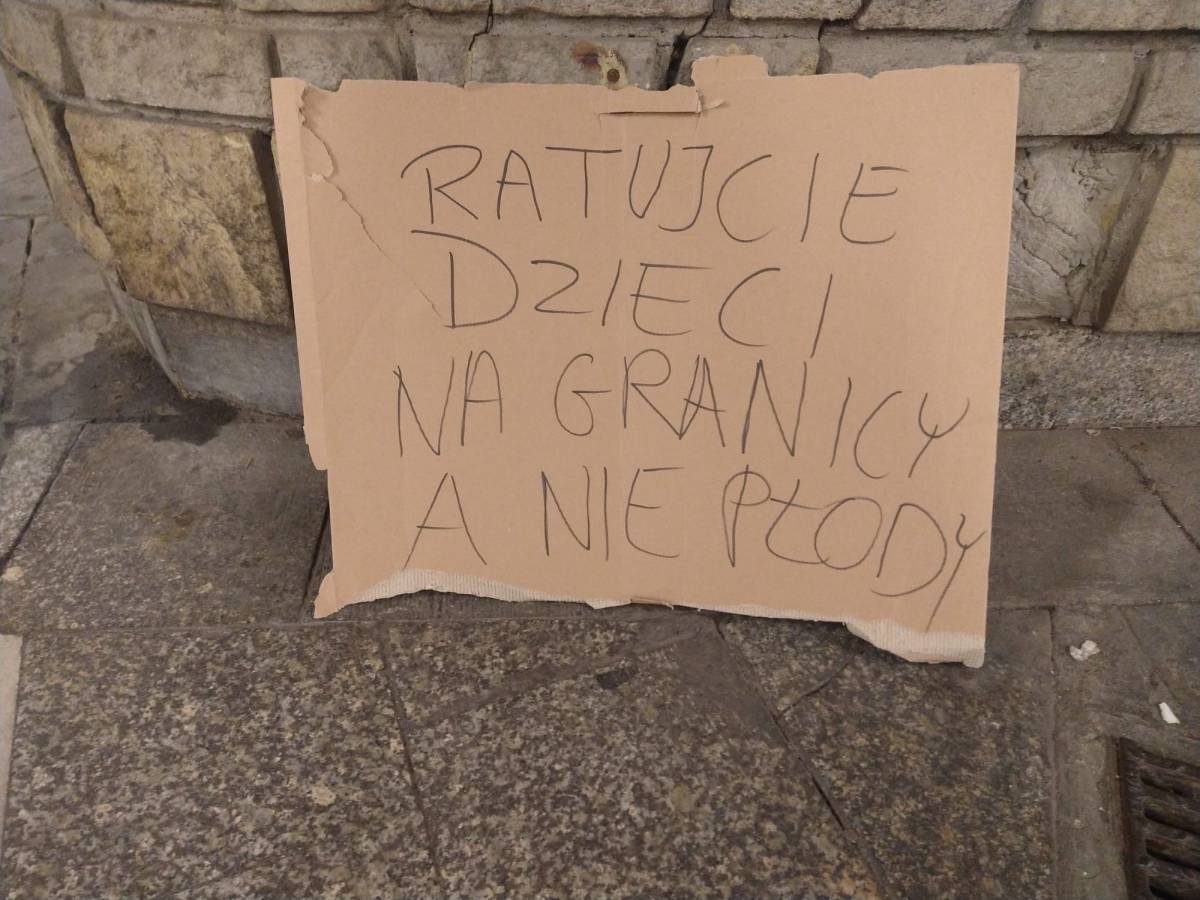 RATUJCIE
DZIECI
NA GRANICY
A NIE PŁODY